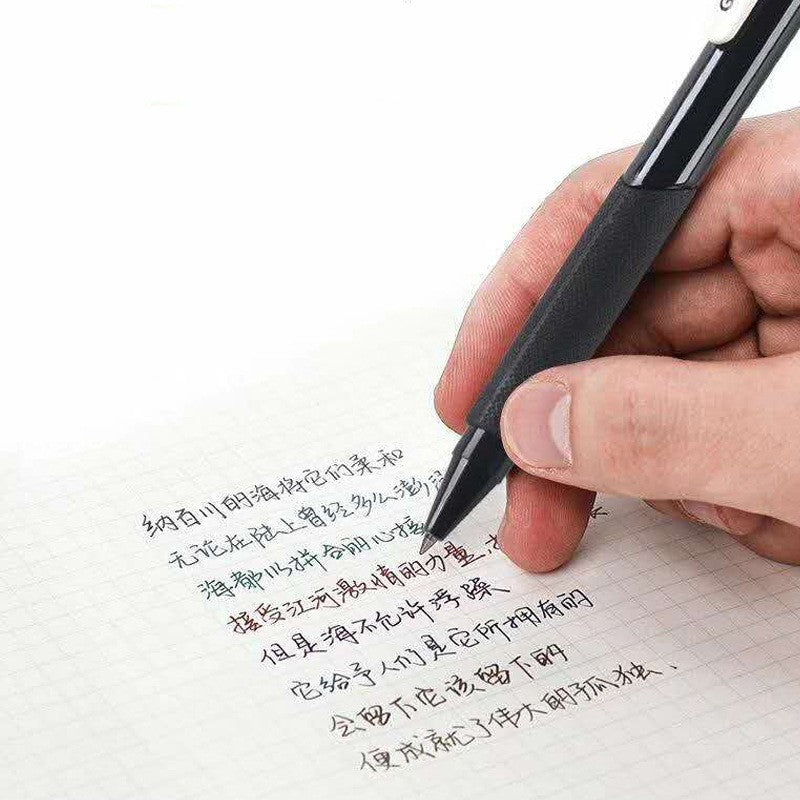 G
纳百川的海将它们柔和
无论在陆上曾经多么澎
海都以拼合的心接
接受江河激情的力量.
但是海不允许浮躁
它给予人们是它所拥有的
会留下它该留下的
便成就了伟大的孤独、